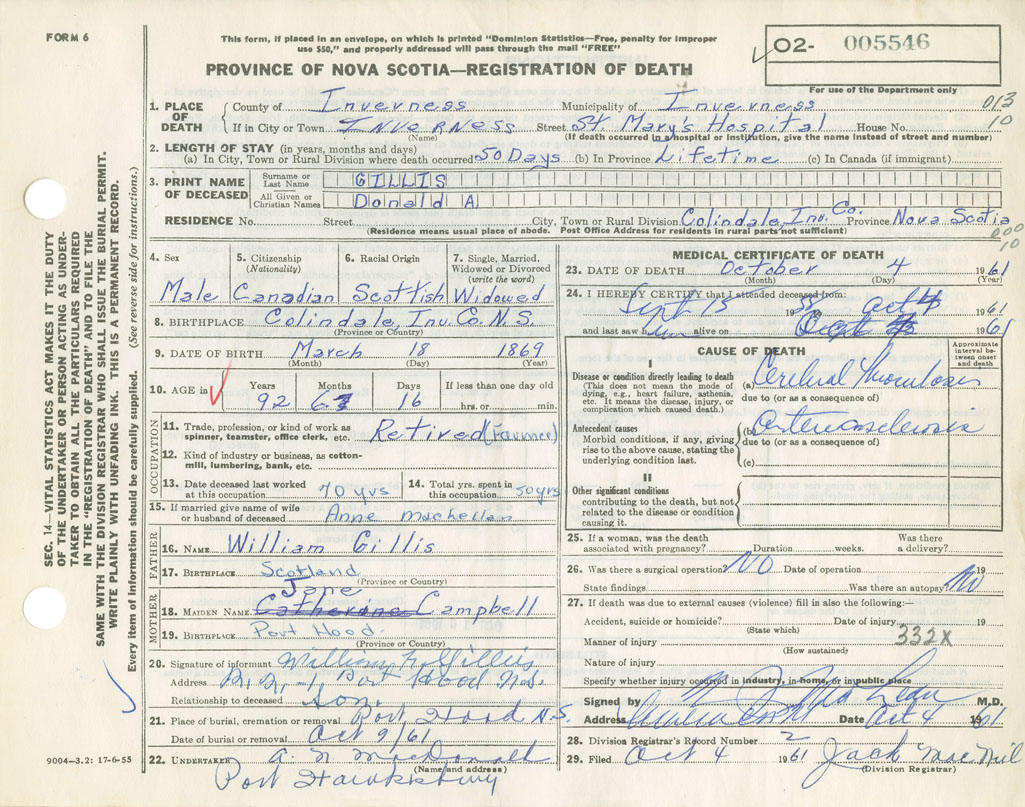 FORM 6
This form, if placed in an envelope, on which is printed "Dominion Statistics—Free, penalty for improper
use $50," and properly addressed will pass through the mail "FREE"
O2- 005546
PROVINCE OF NOVA SCOTIA—REGISTRATION OF DEATH
For use of the Department only
SEC. 14—VITAL STATISTICS ACT MAKES IT THE DUTY
OF THE UNDERTAKER OR PERSON ACTING AS UNDER-
TAKER TO OBTAIN ALL THE PARTICULARS REQUIRED
IN THE "REGISTRATION OF DEATH" AND TO FILE THE
SAME WITH THE DIVISION REGISTRAR WHO SHALL ISSUE THE BURIAL PERMIT.
WRITE PLAINLY WITH UNFADING INK. THIS IS A PERMANENT RECORD.
Every item of Information should be carefully supplied. (See reverse side for instructions.)
1. PLACE OF DEATH County of Inverness Municipality of Inverness 013
If in City or Town INVERNESS Street St. Mary's Hospital House No. 10
(Name) (If death occurred in a hospital or institution, give the name instead of street and number)
2. LENGTH OF STAY (in years, months and days)
(a) In City, Town or Rural Division where death occurred 50 Days (b) In Province Lifetime (c) In Canada (if immigrant)
3. PRINT NAME OF DECEASED Surname or Last Name GILLIS
All Given or Christian Names Donald A
RESIDENCE No. Street City, Town or Rural Division Colindale, Inv. Co. Province Nova Scotia
(Residence means usual place of abode. Post Office Address for residents in rural parts not sufficient)
000
10
4. Sex 5. Citizenship (Nationality) 6. Racial Origin 7. Single, Married, Widowed or Divorced (write the word)
Male Canadian Scottish Widowed
8. BIRTHPLACE Colindale, Inv. Co. N.S.
(Province or Country)
9. DATE OF BIRTH March 18 1869
(Month) (Day) (Year)
10. AGE in Years Months Days If less than one day old
92 6 16 hrs. or min.
OCCUPATION
11. Trade, profession, or kind of work as
spinner, teamster, office clerk, etc. Retired (Farmer)
12. Kind of industry or business, as cotton-
mill, lumbering, bank, etc.
13. Date deceased last worked at this occupation 70 yrs 14. Total yrs. spent in this occupation 50 yrs
15. If married give name of wife
or husband of deceased Anne MacLellan
FATHER
16. NAME William Gillis
17. BIRTHPLACE Scotland
(Province or Country)
MOTHER
Jane
18. MAIDEN NAME Catherine Campbell
19. BIRTHPLACE Port Hood
(Province or Country)
20. Signature of informant William N. Gillis
Address R.R.-1, Port Hood N.S.
Relationship to deceased son.
21. Place of burial, cremation or removal Port Hood N.S.
Date of burial or removal Oct 9/61
22. UNDERTAKER A. N. MacDonald
(Name and address)
Port Hawkesbury
9004—3.2: 17-6-55
MEDICAL CERTIFICATE OF DEATH
23. DATE OF DEATH October 4 1961
(Month) (Day) (Year)
24. I HEREBY CERTIFY that I attended deceased from:
Sept 15 19 Oct 4 1961
and last saw him alive on Oct 1961
CAUSE OF DEATH
Approximate interval between onset and death
I
Disease or condition directly leading to death
(This does not mean the mode of
dying, e.g., heart failure, asthenia,
etc. It means the disease, injury, or
complication which caused death.)
(a) Cerebral thrombosis
due to (or as a consequence of)
Antecedent causes
Morbid conditions, if any, giving
rise to the above cause, stating the
underlying condition last.
(b) Arteriosclerosis
due to (or as a consequence of)
(c)
II
Other significant conditions
contributing to the death, but not
related to the disease or condition
causing it.
25. If a woman, was the death Was there
associated with pregnancy? Duration weeks. a delivery?
26. Was there a surgical operation? NO Date of operation 19
State findings Was there an autopsy? No
27. If death was due to external causes (violence) fill in also the following:—
Accident, suicide or homicide? Date of injury 19
(State which)
Manner of injury 332X
(How sustained)
Nature of injury
Specify whether injury occurred in industry, in home, or in public place
Signed by M.D.
Address Date Oct 4 1961
28. Division Registrar's Record Number 2
29. Filed Oct 4 1961 Jack MacNeil
(Division Registrar)